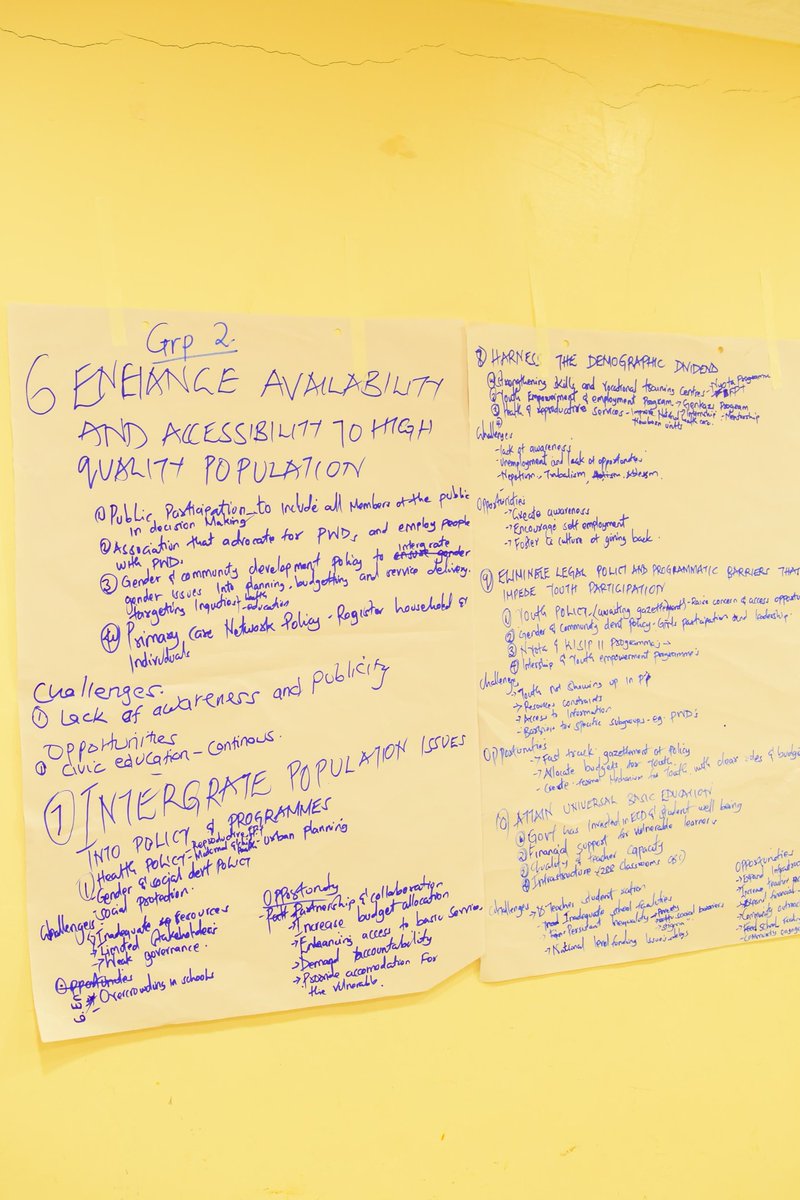 Grp 2.
6 ENHANCE AVAILABILITY
AND ACCESSIBILITY TO HIGH
QUALITY POPULATION
① Public Participation - to include all Members of the public
in decision Making
② Association that advocate for PWDs and employ people
with PWDs
③ Gender & community development policy to intergrate
gender issues into planning, budgeting and service delivery.
targeting
- education
④ Primary Care Network Policy - Register household &
Individuals
Challenges.
① Lack of awareness and publicity
Opportunities
① Civic education - Continous.
⑦ INTERGRATE POPULATION ISSUES
INTO POLICY & PROGRAMMES
① Health Policy - Reproductive, FP,
- Gender & social devt Policy - Urban planning
- Social protection.
Challenges
↳ Inadequate Resources
→ Limited Stakeholders
→ Weak governance.
Opportunities
* Overcrowding in schools
Opportunity
- Partnership & collaboration
→ Increase budget allocation
→ Enhancing access to basic service
→ Demand accountability
→ Provide accomodation For
the vulnerable.
⑧ HARNESS THE DEMOGRAPHIC DIVIDEND
① Strengthening skills and vocational training centres - Nyota Programme
② Youth Empowerment & employment Program → Program
③ Health & reproductive services - Internship - Mentorship
Challenges
- lack of awareness
- Unemployment and lack of opportunities
- Nepotism - Tribalism
Opportunities
→ Create awareness
→ Encourage self employment
→ Foster a culture of giving back.
⑨ ELIMINATE LEGAL POLICY AND PROGRAMMATIC BARRIERS THAT
IMPEDE YOUTH PARTICIPATION
① Youth Policy - (awaiting gazettement) - Raise concern & access
② Gender & Community devt Policy - Girls participation and leadership.
③ Nyota & KISIP II Programmes
④ Intership & Youth empowerment Programmes
Challenges
→ Youth not showing up in PP
→ Resources constraints
→ Access to Information
- Barriers for specific subgroups - eg. PWD's
Opportunities
- Fast track gazettement of policy
- Allocate budgets for Youth.
- Create formal mechanism for Youth with clear roles &
⑩ ATTAIN UNIVERSAL BASIC EDUCATION
① Govt has invested in ECD & student well being
② Financial support for vulnerable learners
③ Quality & Teacher Capacity
④ Infrastructure
Challenges
→ Teacher student ration
→ Inadequate school facilities
→ Persistent inequality
→ National level funding Issues
Opportunities